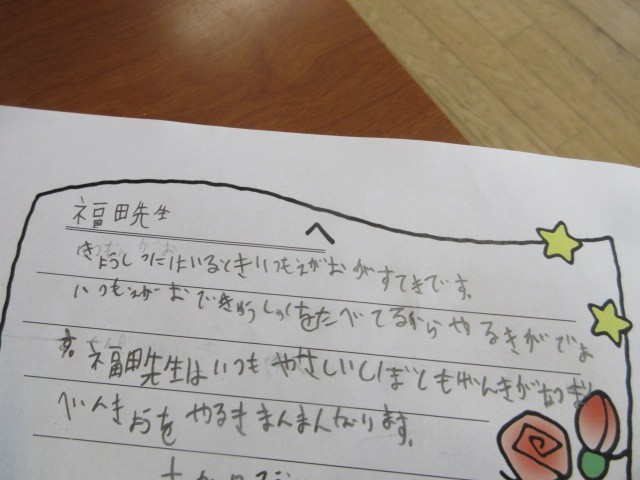 福田先生
へ
きょうしつにはいるときいつもえがおがすてきです。
いつもえがおできゅうしょくをたべてるからやるきがでま
す。福田先生はいつもやさしいし
べんきょうをやるきまんまんなります。